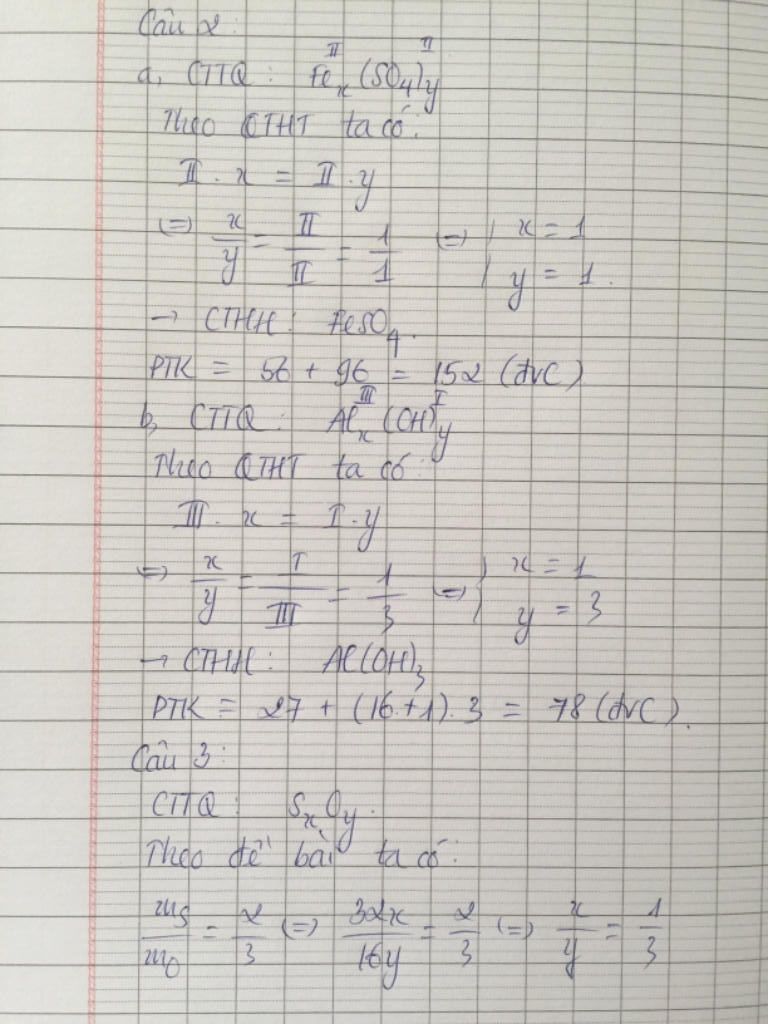 Câu 2:
a, CTTQ: Feₓ^II (SO₄)ᵧ^II
Theo QTHT ta có:
II . x = II . y
(=) x/y = II/II = 1/1 (=) { x = 1
y = 1.
→ CTHH: FeSO₄.
PTK = 56 + 96 = 152 (đvC)
b, CTTQ: Alₓ^III (OH)ᵧ^I
Theo QTHT ta có:
III . x = I . y
(=) x/y = I/III = 1/3 (=) { x = 1
y = 3
→ CTHH: Al(OH)₃
PTK = 27 + (16 + 1) . 3 = 78 (đvC).
Câu 3:
CTTQ: SₓOᵧ.
Theo đề bài ta có:
mS/mO = 2/3 (=) 32x/16y = 2/3 (=) x/y = 1/3